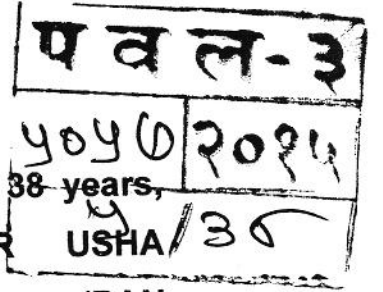 प व ल - ३
५०५७ २०१५
38 years,
५/३८
USHA